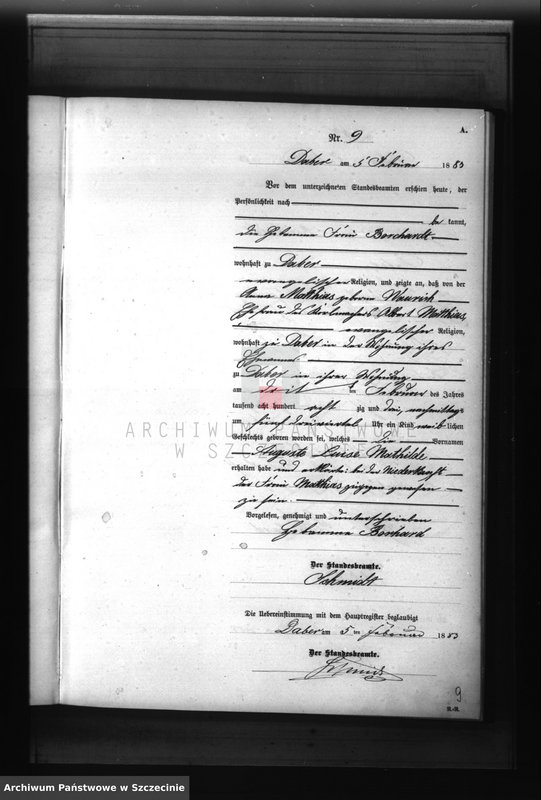 A.
Nr. 9
Daber am 5 Februar 1883
Vor dem unterzeichneten Standesbeamten erschien heute, der
Persönlichkeit nach
be kannt,
die Hebamme Frau Borchardt
wohnhaft zu Daber
evangelischer Religion, und zeigte an, daß von der
Anna Matthias geborne
Ehefrau des Albert Matthias,
evangelischer Religion,
wohnhaft zu Daber in der Wohnung ihres
Ehemannes
zu Daber in ihrer Wohnung
am Februar des Jahres
tausend acht hundert acht zig und drei, nachmittags
fünf dreiviertel Uhr ein Kind weib lichen
Geschlechts geboren worden sei, welches die Vornamen
Auguste Luise Mathilde
erhalten habe und erklärte: bei der Niederkunft
der Frau Matthias zugegen gewesen
zu sein.
Vorgelesen, genehmigt und unterschrieben
Hebamme Borhard
Der Standesbeamte.
Schmidt
Die Uebereinstimmung mit dem Hauptregister beglaubigt
Daber am 5 ten Februar 1883
Der Standesbeamte.
Schmidt
9
R.-R.
ARCHIWUM PAŃSTWOWE
W SZCZECINIE
Archiwum Państwowe w Szczecinie